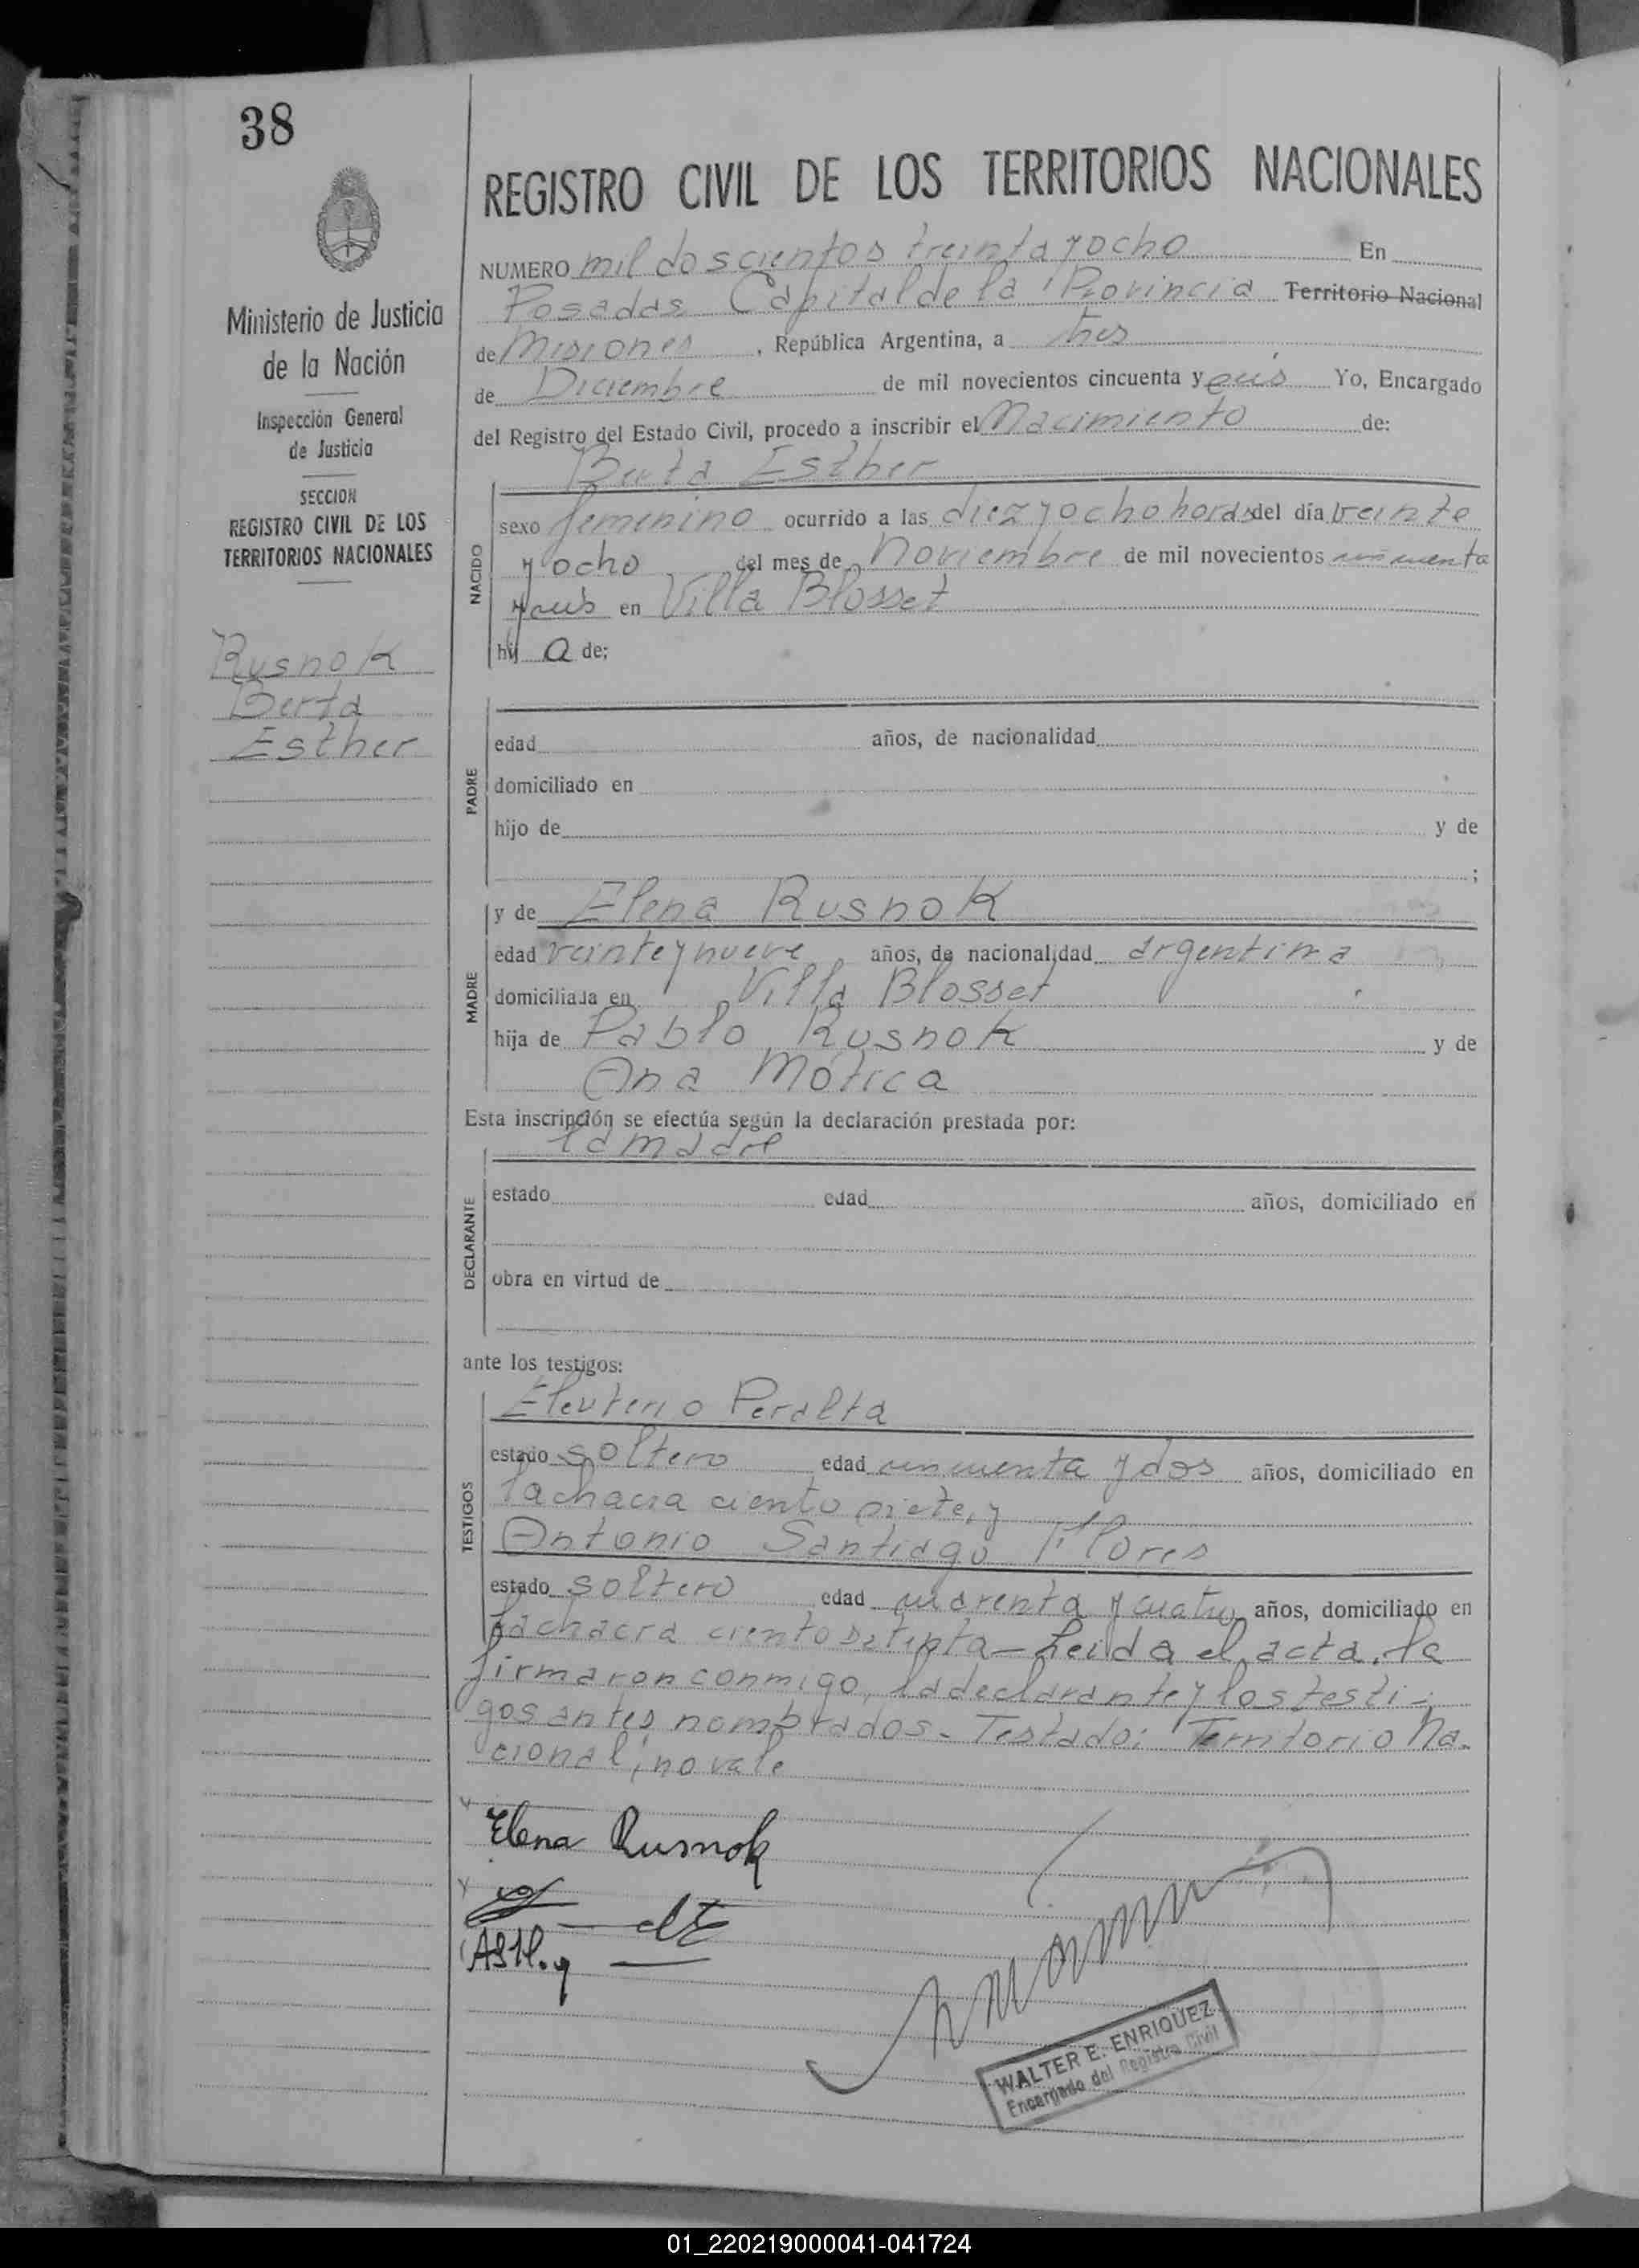 38
REGISTRO CIVIL DE LOS TERRITORIOS NACIONALES
NUMERO mil doscientos treinta y ocho En
Posadas Capital de la Provincia Territorio Nacional
de Misiones, República Argentina, a tres
de Diciembre de mil novecientos cincuenta y seis Yo, Encargado
del Registro del Estado Civil, procedo a inscribir el Nacimiento de:
Berta Esther
Ministerio de Justicia
de la Nación
Inspección General
de Justicia
SECCION
REGISTRO CIVIL DE LOS
TERRITORIOS NACIONALES
Rusnok
Berta
Esther
NACIDO
sexo femenino ocurrido a las diez y ocho horas del día veinte
y ocho del mes de Noviembre de mil novecientos cincuenta
y seis en Villa Blosset
hij a de;
PADRE
edad años, de nacionalidad
domiciliado en
hijo de y de
;
MADRE
y de Elena Rusnok
edad veinte y nueve años, de nacionalidad argentina
domiciliada en Villa Blosset
hija de Pablo Rusnok y de
Ana Mótica
Esta inscripción se efectúa según la declaración prestada por:
la madre
DECLARANTE
estado edad años, domiciliado en
obra en virtud de
ante los testigos:
TESTIGOS
Eleuterio Peralta
estado soltero edad cincuenta y dos años, domiciliado en
la chacra ciento siete, y
Antonio Santiago Flores
estado soltero edad cuarenta y cuatro años, domiciliado en
la chacra ciento setenta - Leida el acta, la
firmaron conmigo, la declarante y los testi-
gos antes nombrados - Testado: Territorio Na-
cional; no vale
Elena Rusnok
WALTER E. ENRIQUEZ
Encargado del Registro Civil
01_220219000041-041724